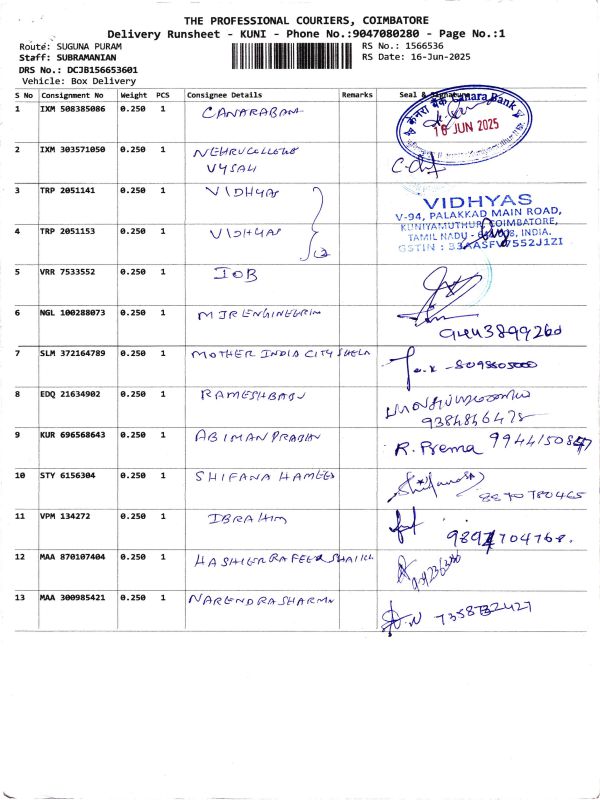 THE PROFESSIONAL COURIERS, COIMBATORE
Delivery Runsheet - KUNI - Phone No.:9047080280 - Page No.:1
Route: SUGUNA PURAM
RS No.: 1566536
Staff: SUBRAMANIAN
RS Date: 16-Jun-2025
DRS No.: DCJB156653601
Vehicle: Box Delivery
S No Consignment No Weight PCS Consignee Details Remarks Seal & Signature
1 IXM 508385086 0.250 1 CANARABANK
केनरा बैंक Canara Bank
16 JUN 2025
2 IXM 303571050 0.250 1 NEHRUCOLLEGE
VYSALI
3 TRP 2051141 0.250 1 VIDHYAS
VIDHYAS
V-94, PALAKKAD MAIN ROAD,
KUNIYAMUTHUR, COIMBATORE,
TAMIL NADU - 641008, INDIA.
GSTIN : 33AASFV7552J1ZI
4 TRP 2051153 0.250 1 VIDHYAS
5 VRR 7533552 0.250 1 IOB
6 NGL 100288073 0.250 1 MJRENGINEERIN
9443899260
7 SLM 372164789 0.250 1 MOTHER INDIA CITY
8 EDQ 21634902 0.250 1 RAMESHBABU
9384846478
9 KUR 696568643 0.250 1 ABIMANPRABHU
R. Prema
10 STY 6156304 0.250 1 SHIFANA HAMEED
8870780465
11 VPM 134272 0.250 1 IBRAHIM
9894704768.
12 MAA 870107404 0.250 1
13 MAA 300985421 0.250 1 NARENDRASHARMA